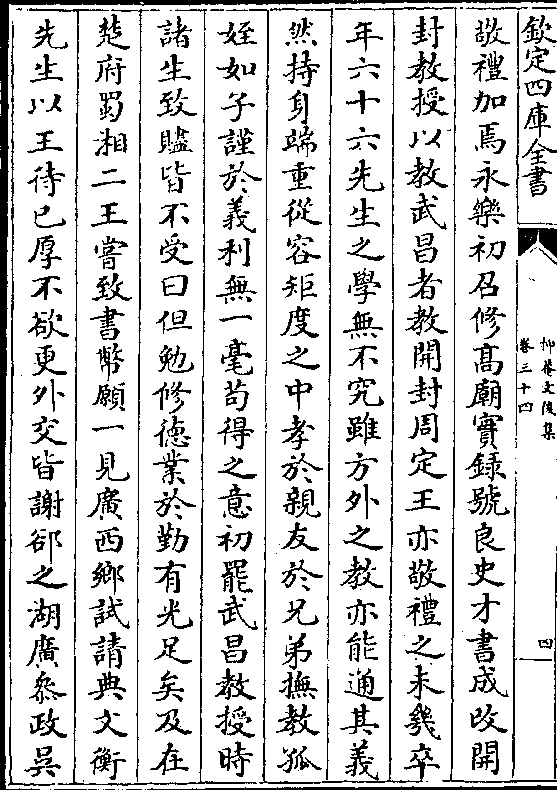 欽定四庫全書
抑菴文後集
卷三十四
四
敬禮加焉永樂初召修髙廟實錄號良史才書成改開
封教授以教武昌者教開封周定王亦敬禮之未幾卒
年六十六先生之學無不究雖方外之教亦能通其義
然持身端重從容矩度之中孝於親友於兄弟撫教孤
姪如子謹於義利無一毫苟得之意初罷武昌教授時
諸生致贐皆不受曰但勉修徳業於勤有光足矣及在
楚府蜀湘二王嘗致書幣願一見廣西鄉試請典文衡
先生以王待已厚不欲更外交皆謝卻之湖廣叅政吳